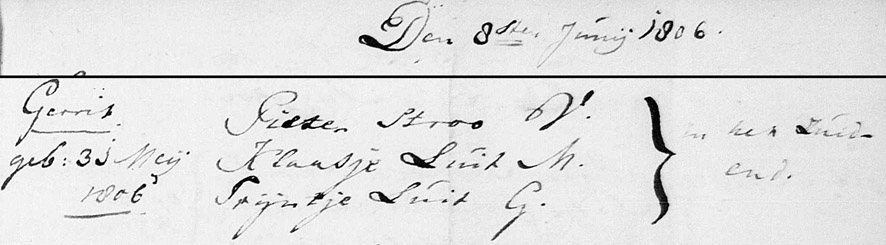 Den 8sten Junij 1806.
Gerrit Pieter Stroo V. in het Zuid-
geb: 31 Meij Klaasje Luit M. end.
1806 Trijntje Luit G.